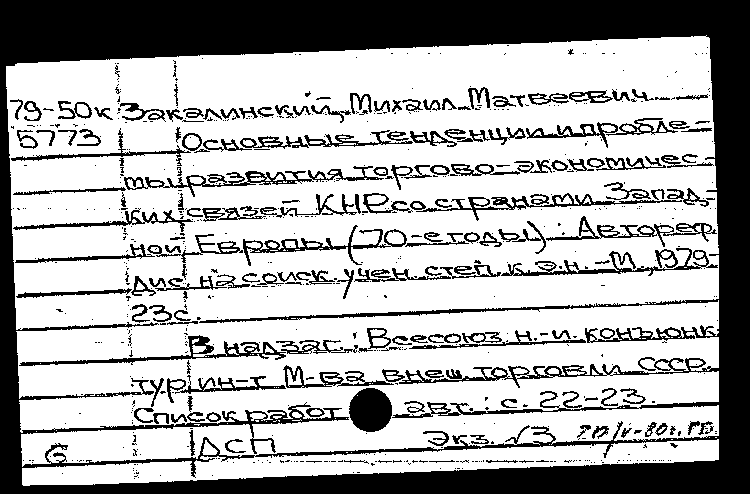 79-50к Закалинский, Михаил Матвеевич
5773 Основные тенденции и пробле-
мы развития торгово-экономичес-
ких связей КНР со странами Запад-
ной Европы (70-е годы) : Автореф.
дис. на соиск. учен. степ. к.э.н. - М., 1979-
23с.
В надзаг.: Всесоюз. н.-и. конъюнк-
тур. ин-т М-ва внеш. торговли СССР.
Список работ авт.: с. 22-23.
6 ДСП Экз. √3